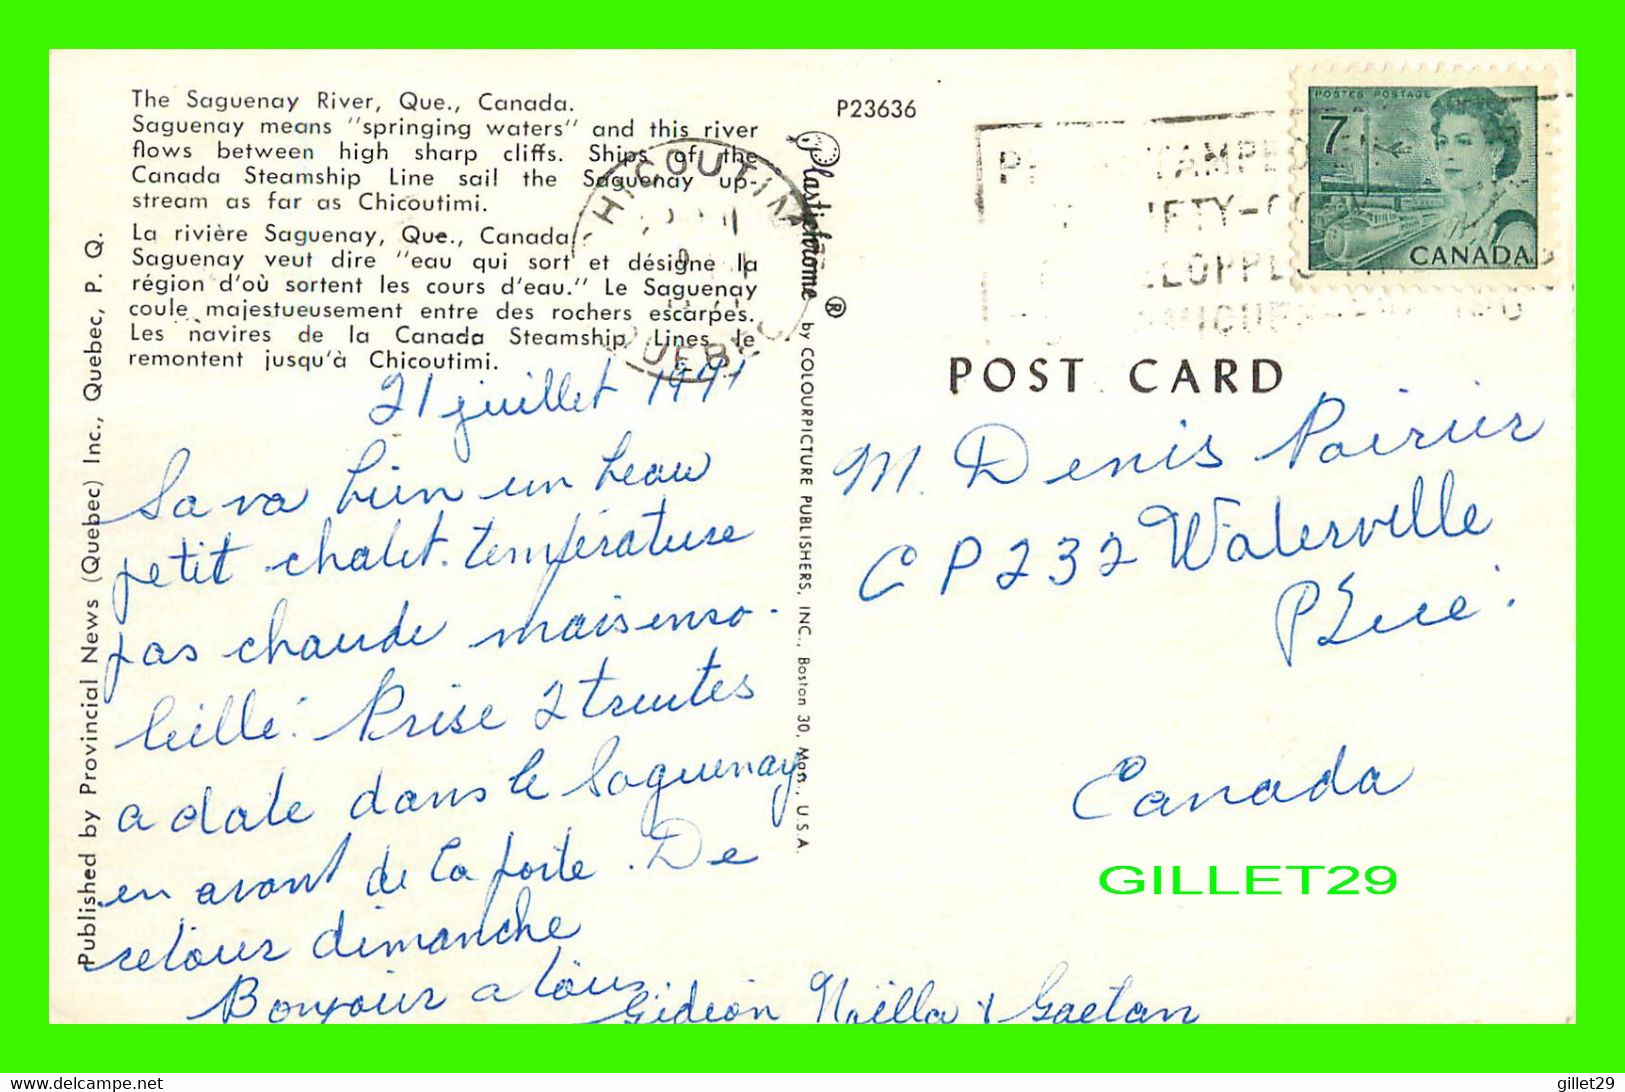 The Saguenay River, Que., Canada.
Saguenay means "springing waters" and this river
flows between high sharp cliffs. Ships of the
Canada Steamship Line sail the Saguenay up-
stream as far as Chicoutimi.
La rivière Saguenay, Que., Canada
Saguenay veut dire "eau qui sort et désigne la
région d'où sortent les cours d'eau." Le Saguenay
coule majestueusement entre des rochers escarpés.
Les navires de la Canada Steamship Lines le
remontent jusqu'à Chicoutimi.
21 juillet 1971
Sa va bien un beau
petit chalet. température
pas chaude mais enso-
leillé. Prise 2 truites
a date dans le Saguenay
en avant de la porte. De
retour dimanche
Bonjour a tous
Gédéon Noëlla & Gaetan
Published by Provincial News (Quebec) Inc., Quebec, P. Q.
Plastichrome ® by COLOURPICTURE PUBLISHERS, INC., Boston 30, Mass., U.S.A.
P23636
CHICOUTIMI
QUEBEC
POSTES POSTAGE
7
CANADA
POST CARD
M. Denis Poirier
C P 232 Waterville
P Qué.
Canada
GILLET29
delcampe.net
gillet29